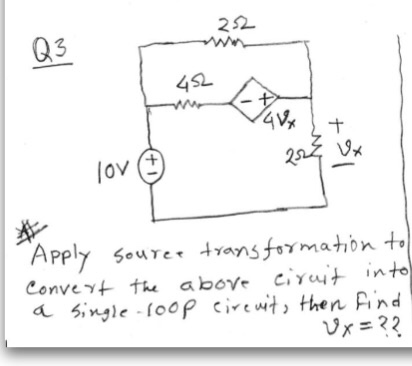 2Ω
Q3
4Ω
- +
4Vx
+
2Ω Vx
10V + -
* Apply source transformation to
convert the above ciruit into
a single-loop circuit, then find
Vx = ??